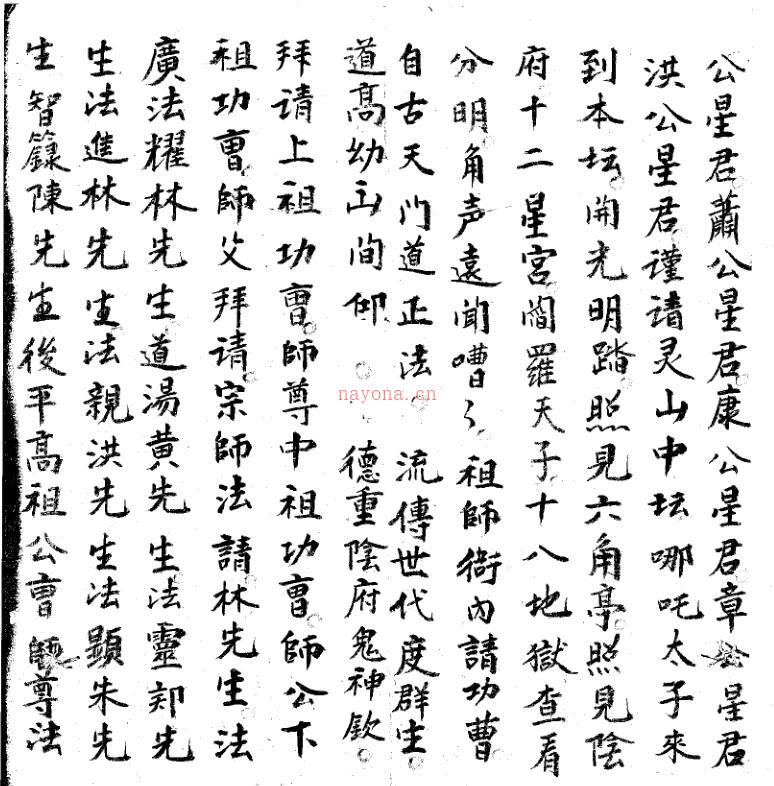 公星君蕭公星君康公星君章公星君
洪公星君谨请灵山中坛哪吒太子來
到本坛開光明踏照見六角亭照見陰
府十二星宮閻羅天子十八地獄查看
分明角声遠聞嘈〻祖師衙內請功曹
自古天门道正法流傳世代度群生
道高幼 间仰德重陰府鬼神欽
拜请上祖功曹師尊中祖功曹師公下
祖功曹師父拜请宗師法請林先生法
廣法耀林先生道湯黄先生法靈郑先
生法進林先生法親洪先生法顯朱先
生智籙陳先生後平高祖公曹師尊法
nayona.cn